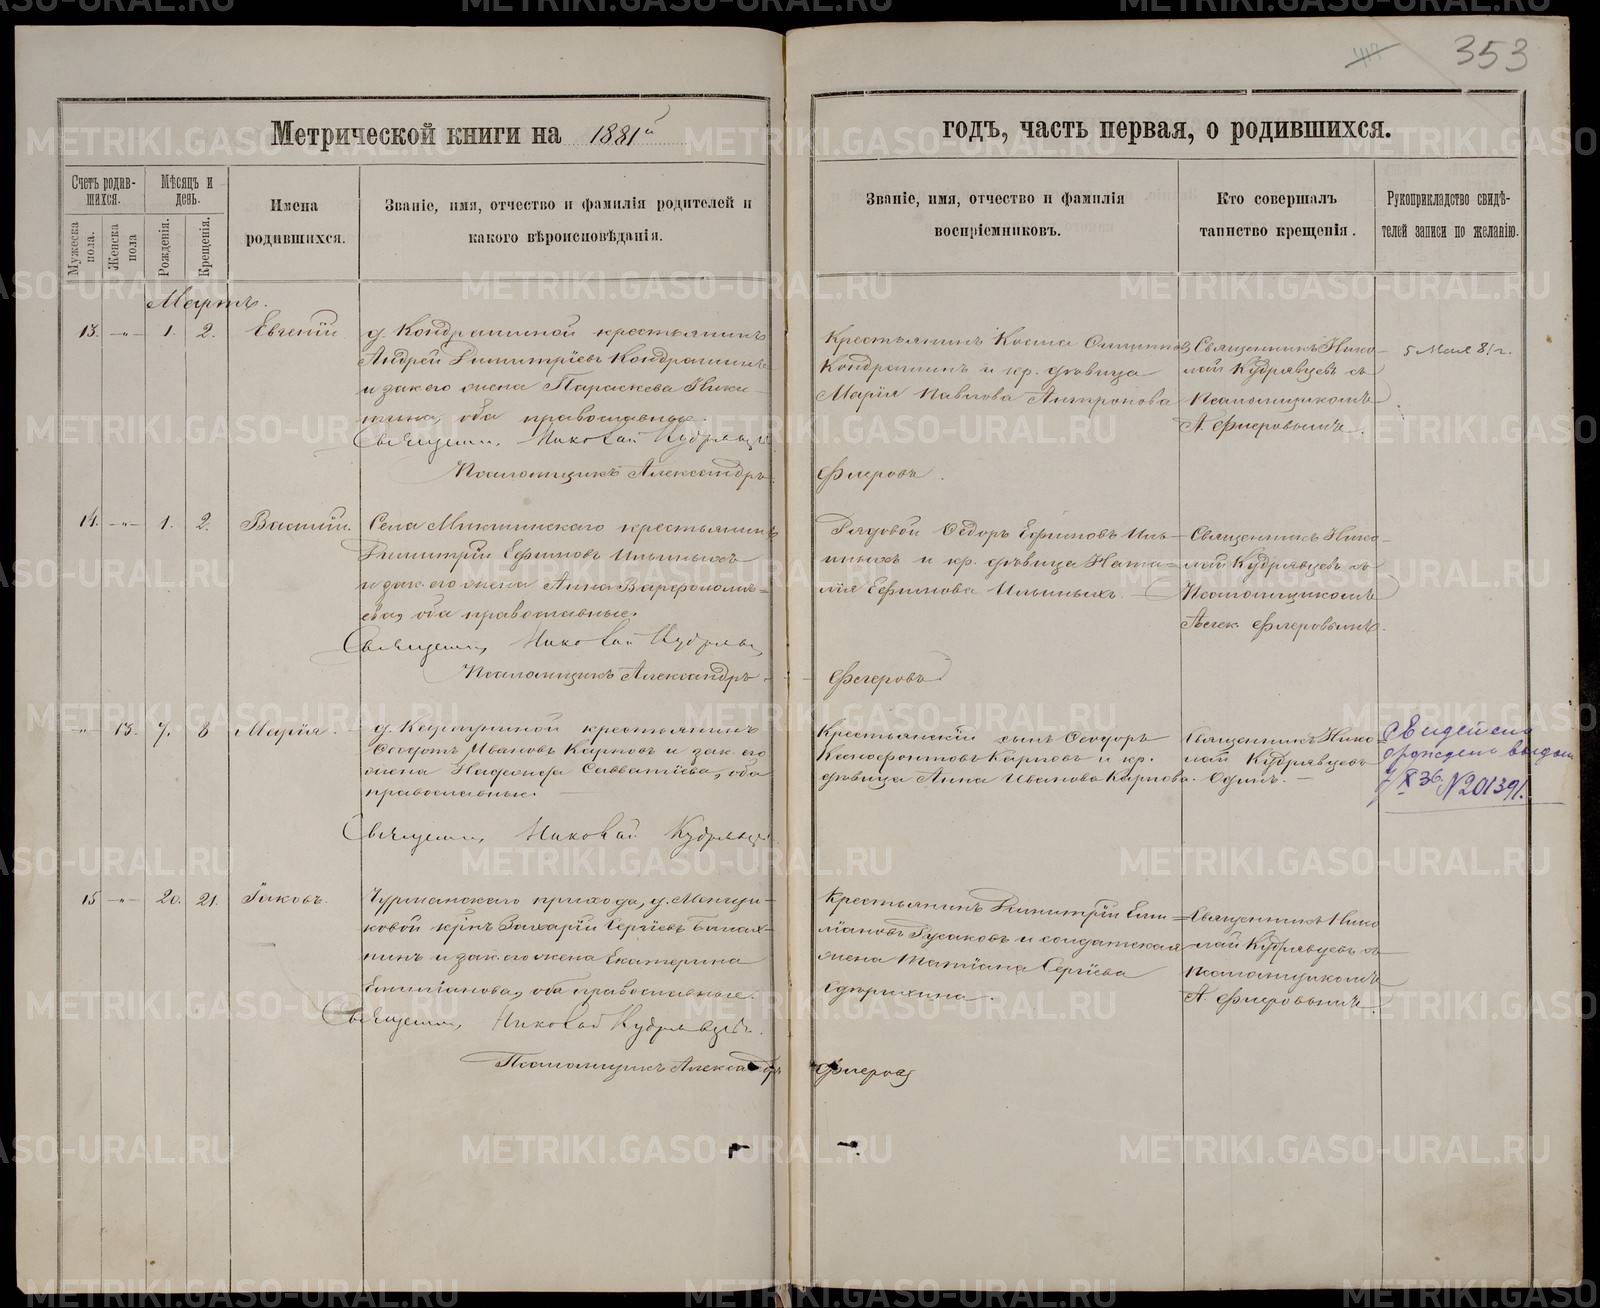 353
Метрической книги на 1881й
годъ, часть первая, о родившихся.
Счетъ родив-
шихся.
Мужеска пола.
Женска пола
Мѣсяцъ и
день.
Рожденія.
Крещенія.
Имена
родившихся.
Званіе, имя, отчество и фамилія родителей и
какого вѣроисповѣданія.
Званіе, имя, отчество и фамилія
воспріемниковъ.
Кто совершалъ
таинство крещенія.
Рукоприкладство свидѣ-
телей записи по желанію.
Мартъ.
13. -„- 1. 2. Евгеній
д. Кондрашиной крестьянинъ
Андрей Димитріевъ Кондрашинъ
и зак. его жена Параскева Ники-
тина, оба православные.
Священник Николай Кудрявцев
Псаломщикъ Александръ
Крестьянинъ Косма
Кондрашинъ и кр. дѣвица
Марія Павлова Антропова
Флеровъ.
Священникъ Нико-
лай Кудрявцевъ съ
Псаломщикомъ
А. Флеровымъ.
5 Мая 81 г.
14. -„- 1. 2. Василій.
Села Микшинскаго крестьянинъ
Димитрій Ефимовъ Ильиныхъ
и зак. его жена Анна Варфоломе-
ева, оба православные.
Священник Николай Кудрявцев
Псаломщикъ Александръ
Рядовой Ѳедоръ Ефимовъ Иль-
иныхъ и кр. дѣвица Ната-
лія Ефимова Ильиныхъ.
Флеровъ
Священникъ Нико-
лай Кудрявцевъ съ
Псаломщикомъ
Алек. Флеровымъ.
-„- 13. 7. 8 Марія.
крестьянинъ
Ѳеодотъ Ивановъ Карповъ и зак. его
жена Савватіева, оба
православные.
Священник Николай Кудрявцев
Крестьянскій сынъ Ѳеодоръ
Ксенофонтовъ Карповъ и кр.
дѣвица Анна Иванова Карпова.
Священникъ Нико-
лай Кудрявцевъ
Одинъ.
Свидет. о
рожден. выдан
7/X 36 N201391.
15 -„- 20. 21. Іаковъ.
прихода, д.
ковой кр-нъ Захарій Сергіевъ
нинъ и зак. его жена Екатерина
Емиліанова, оба православные.
Священник Николай Кудрявцев.
Псаломщикъ Александръ
Крестьянинъ Димитрій Еми-
ліановъ Гусаковъ и солдатская
жена Татіана Сергіева
Флеровъ
Священникъ Нико
лай Кудрявцевъ съ
Псаломщикомъ
А. Флеровымъ.
METRIKI.GASO-URAL.RU